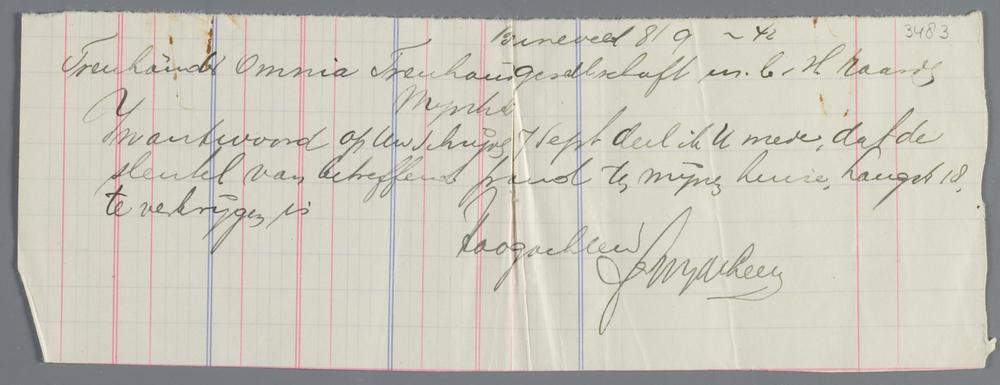 Barneveld 8/9 - 42
3483
Treuhänder Omnia Treuhandgesellschaft m.b.H Haarlem
Mijnheer
In antwoord op Uw schrijven 7 Sept deel ik U mede, dat de
sleutel van betreffend pand ten mijnen huize, Langst 18,
te verkrijgen is
Hoogachtend